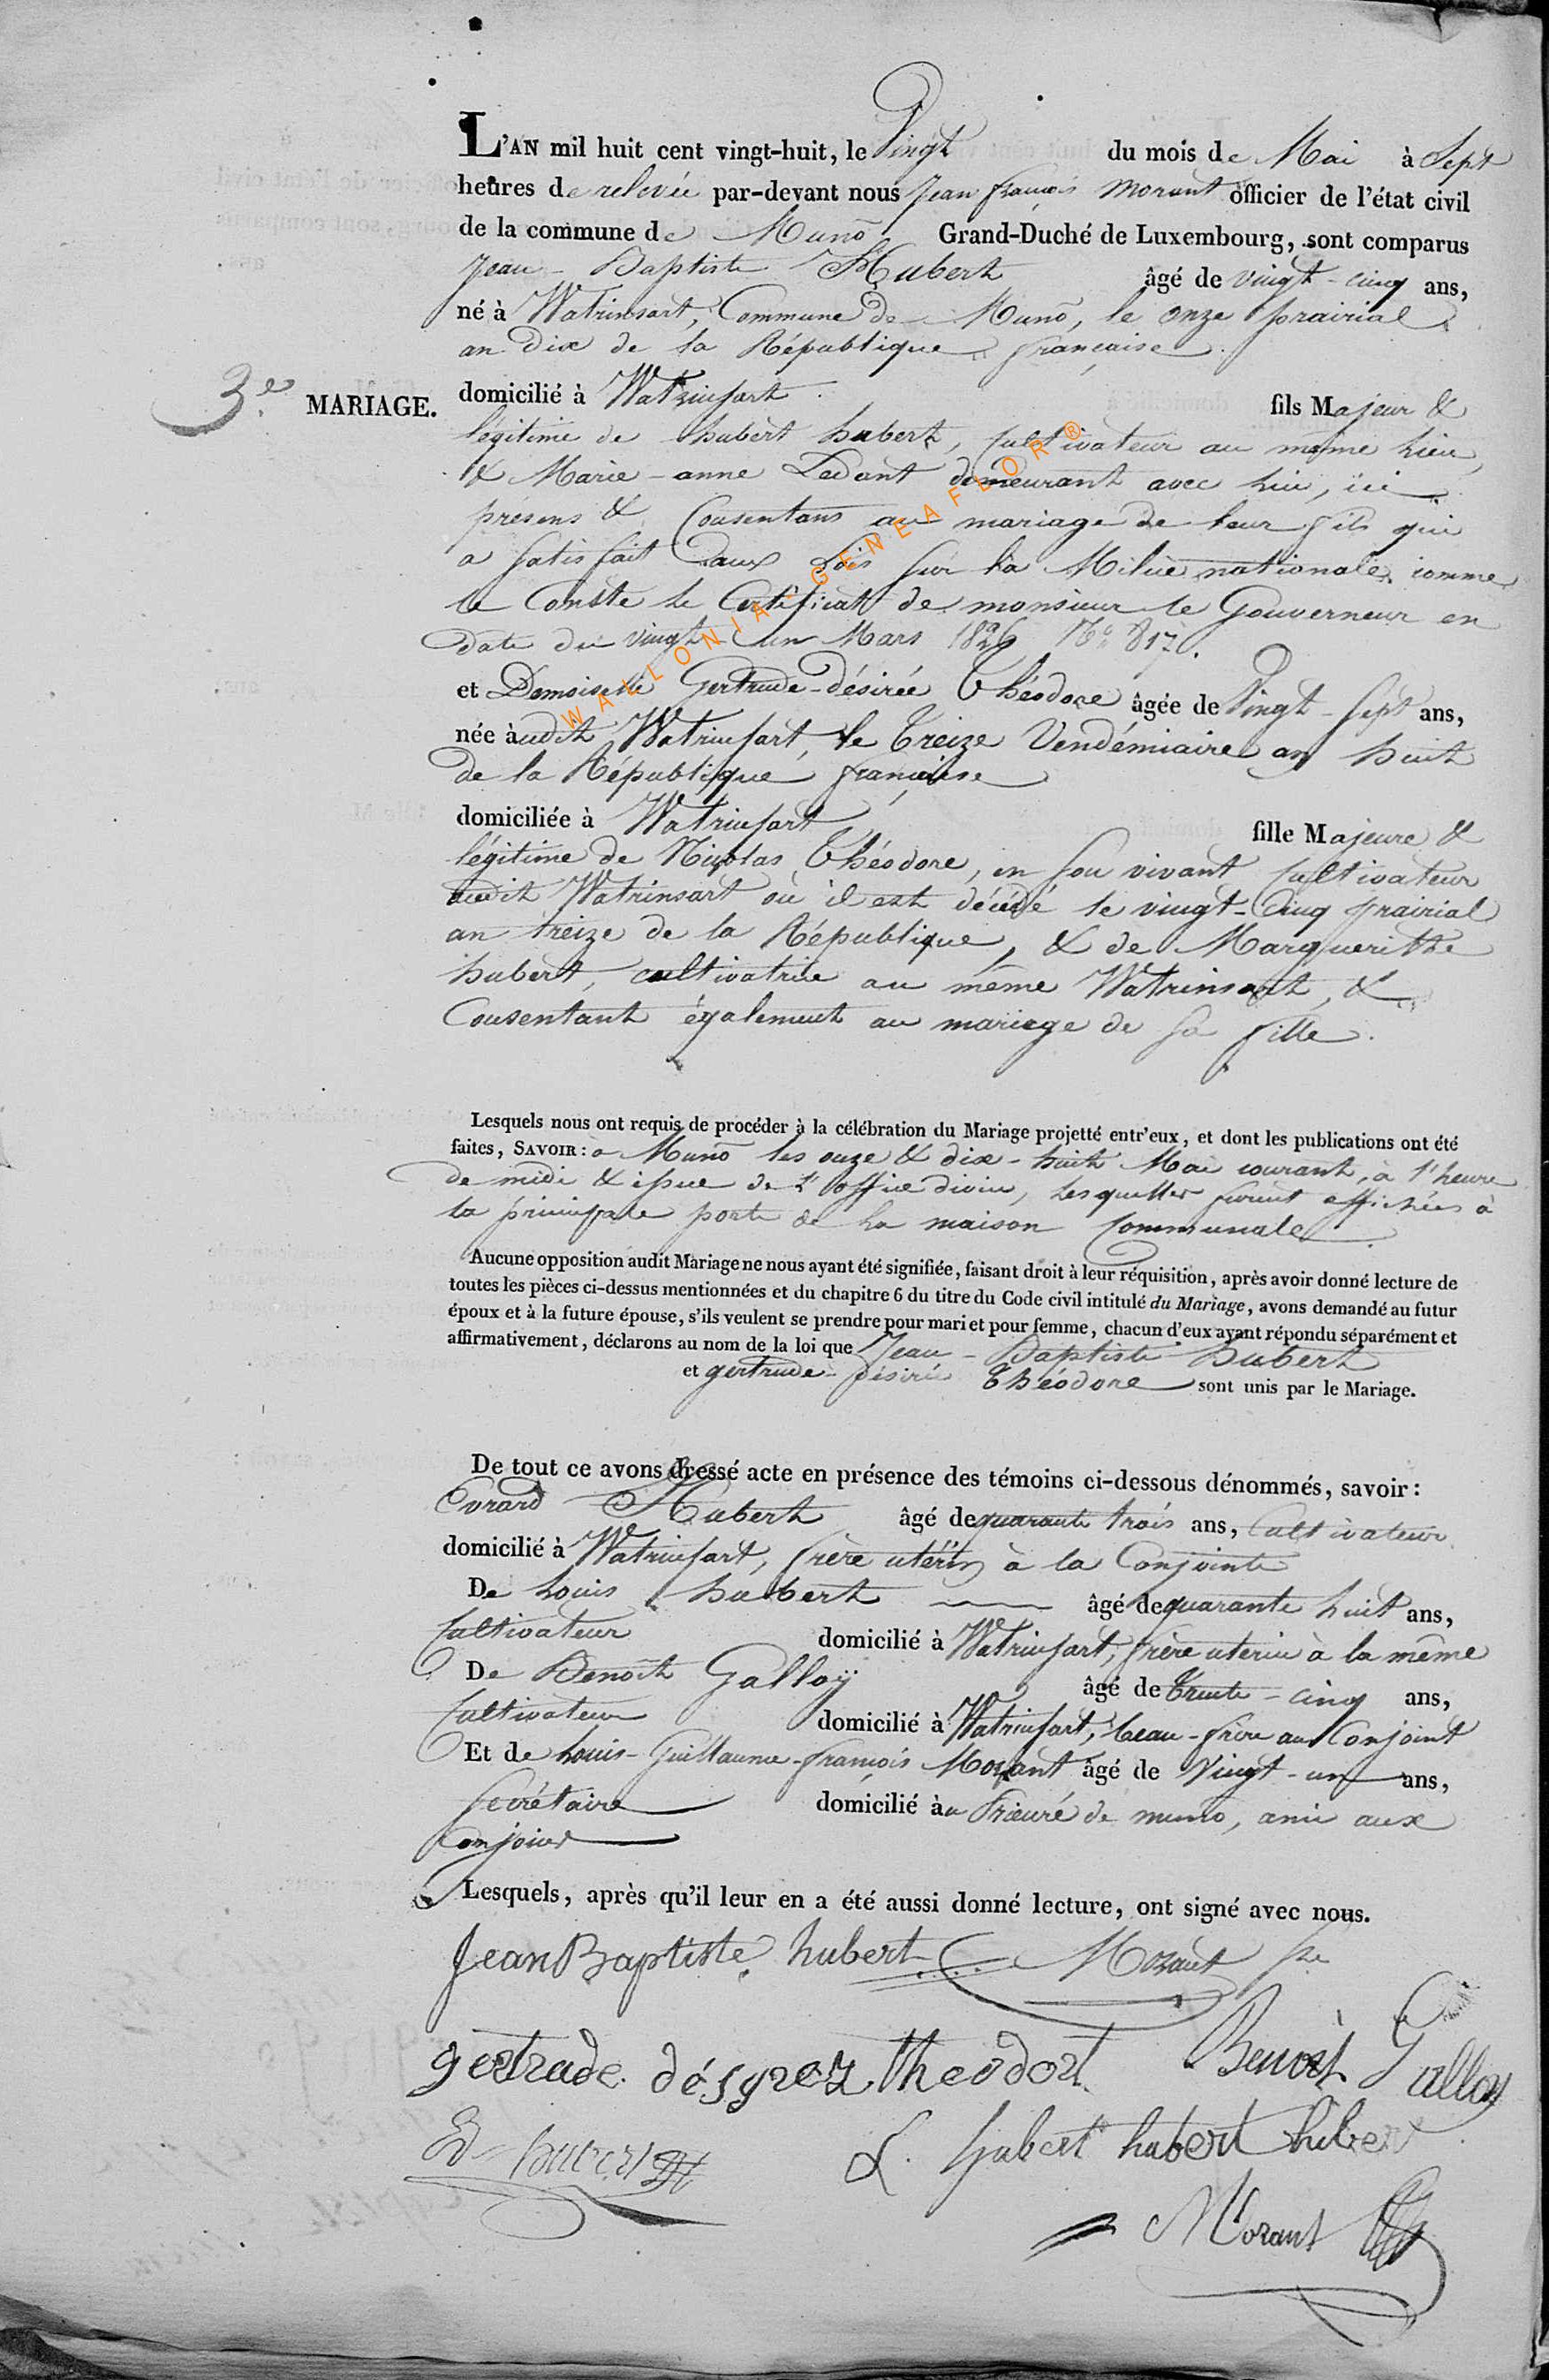 L'AN mil huit cent vingt-huit, le Vingt du mois de Mai à Sept
heures de relevée par-devant nous Jean françois Morant officier de l'état civil
de la commune de Muno Grand-Duché de Luxembourg, sont comparus
Jean-Baptiste Hubert âgé de vingt-cinq ans,
né à Watrinsart, Commune de Muno, le onze prairial
an dix de la République française.
3e. MARIAGE.
domicilié à Watrinsart. fils Majeur &
légitime de hubert hubert, Cultivateur au même lieu,
& Marie-anne Ledant demeurant avec lui, ici
presens & Consentans au mariage de leur fils qui
a satisfait aux Lois sur la Milice nationale, comme
le Conste le Certificat de monsieur le Gouverneur en
date du vingt un Mars 1826 No. 817.
et Demoiselle Gertrude-désirée Théodore âgée de Vingt-sept ans,
née àudit Watrinsart, le Treize Vendémiaire an huit
de la République française
domiciliée à Watrinsart fille Majeure &
légitime de Nicolas Théodore, en son vivant Cultivateur
audit Watrinsart où il est décédé le vingt-Cinq prairial
an treize de la République, & de Marguerithe
hubert, cultivatrice au même Watrinsart, &
Consentant également au mariage de sa fille.
Lesquels nous ont requis de procéder à la célébration du Mariage projetté entr'eux, et dont les publications ont été
faites, SAVOIR: à Muno les onze & dix-huit Mai courant, à l'heure
de midi & issue de l'office divin, lesquelles furent affichées à
la principale porte de la maison Communale
Aucune opposition audit Mariage ne nous ayant été signifiée, faisant droit à leur réquisition, après avoir donné lecture de
toutes les pièces ci-dessus mentionnées et du chapitre 6 du titre du Code civil intitulé du Mariage, avons demandé au futur
époux et à la future épouse, s'ils veulent se prendre pour mari et pour femme, chacun d'eux ayant répondu séparément et
affirmativement, déclarons au nom de la loi que Jean-Baptiste hubert
et gertrude-désirée Théodore sont unis par le Mariage.
De tout ce avons dressé acte en présence des témoins ci-dessous dénommés, savoir:
Evrard Hubert âgé de quarante trois ans, Cultivateur
domicilié à Watrinsart, frère utérin à la Conjointe
De Louis hubert âgé de quarante huit ans,
Cultivateur domicilié à Watrinsart, frère utérin à la même
De Benoît Galloÿ âgé de Trente-cinq ans,
Cultivateur domicilié à Watrinsart, beau-frère au Conjoint
Et de Louis-Guillaume-françois Morant âgé de Vingt-un ans,
Secrétaire domicilié àu Prieuré de muno, ami aux
Conjoins
Lesquels, après qu'il leur en a été aussi donné lecture, ont signé avec nous.
Jean Baptiste hubert Morant
gertrude désyrez theodort Benoit Galloy
L. hubert hubert hubert
Morant
WALLONIA - GENEAFLOR ®